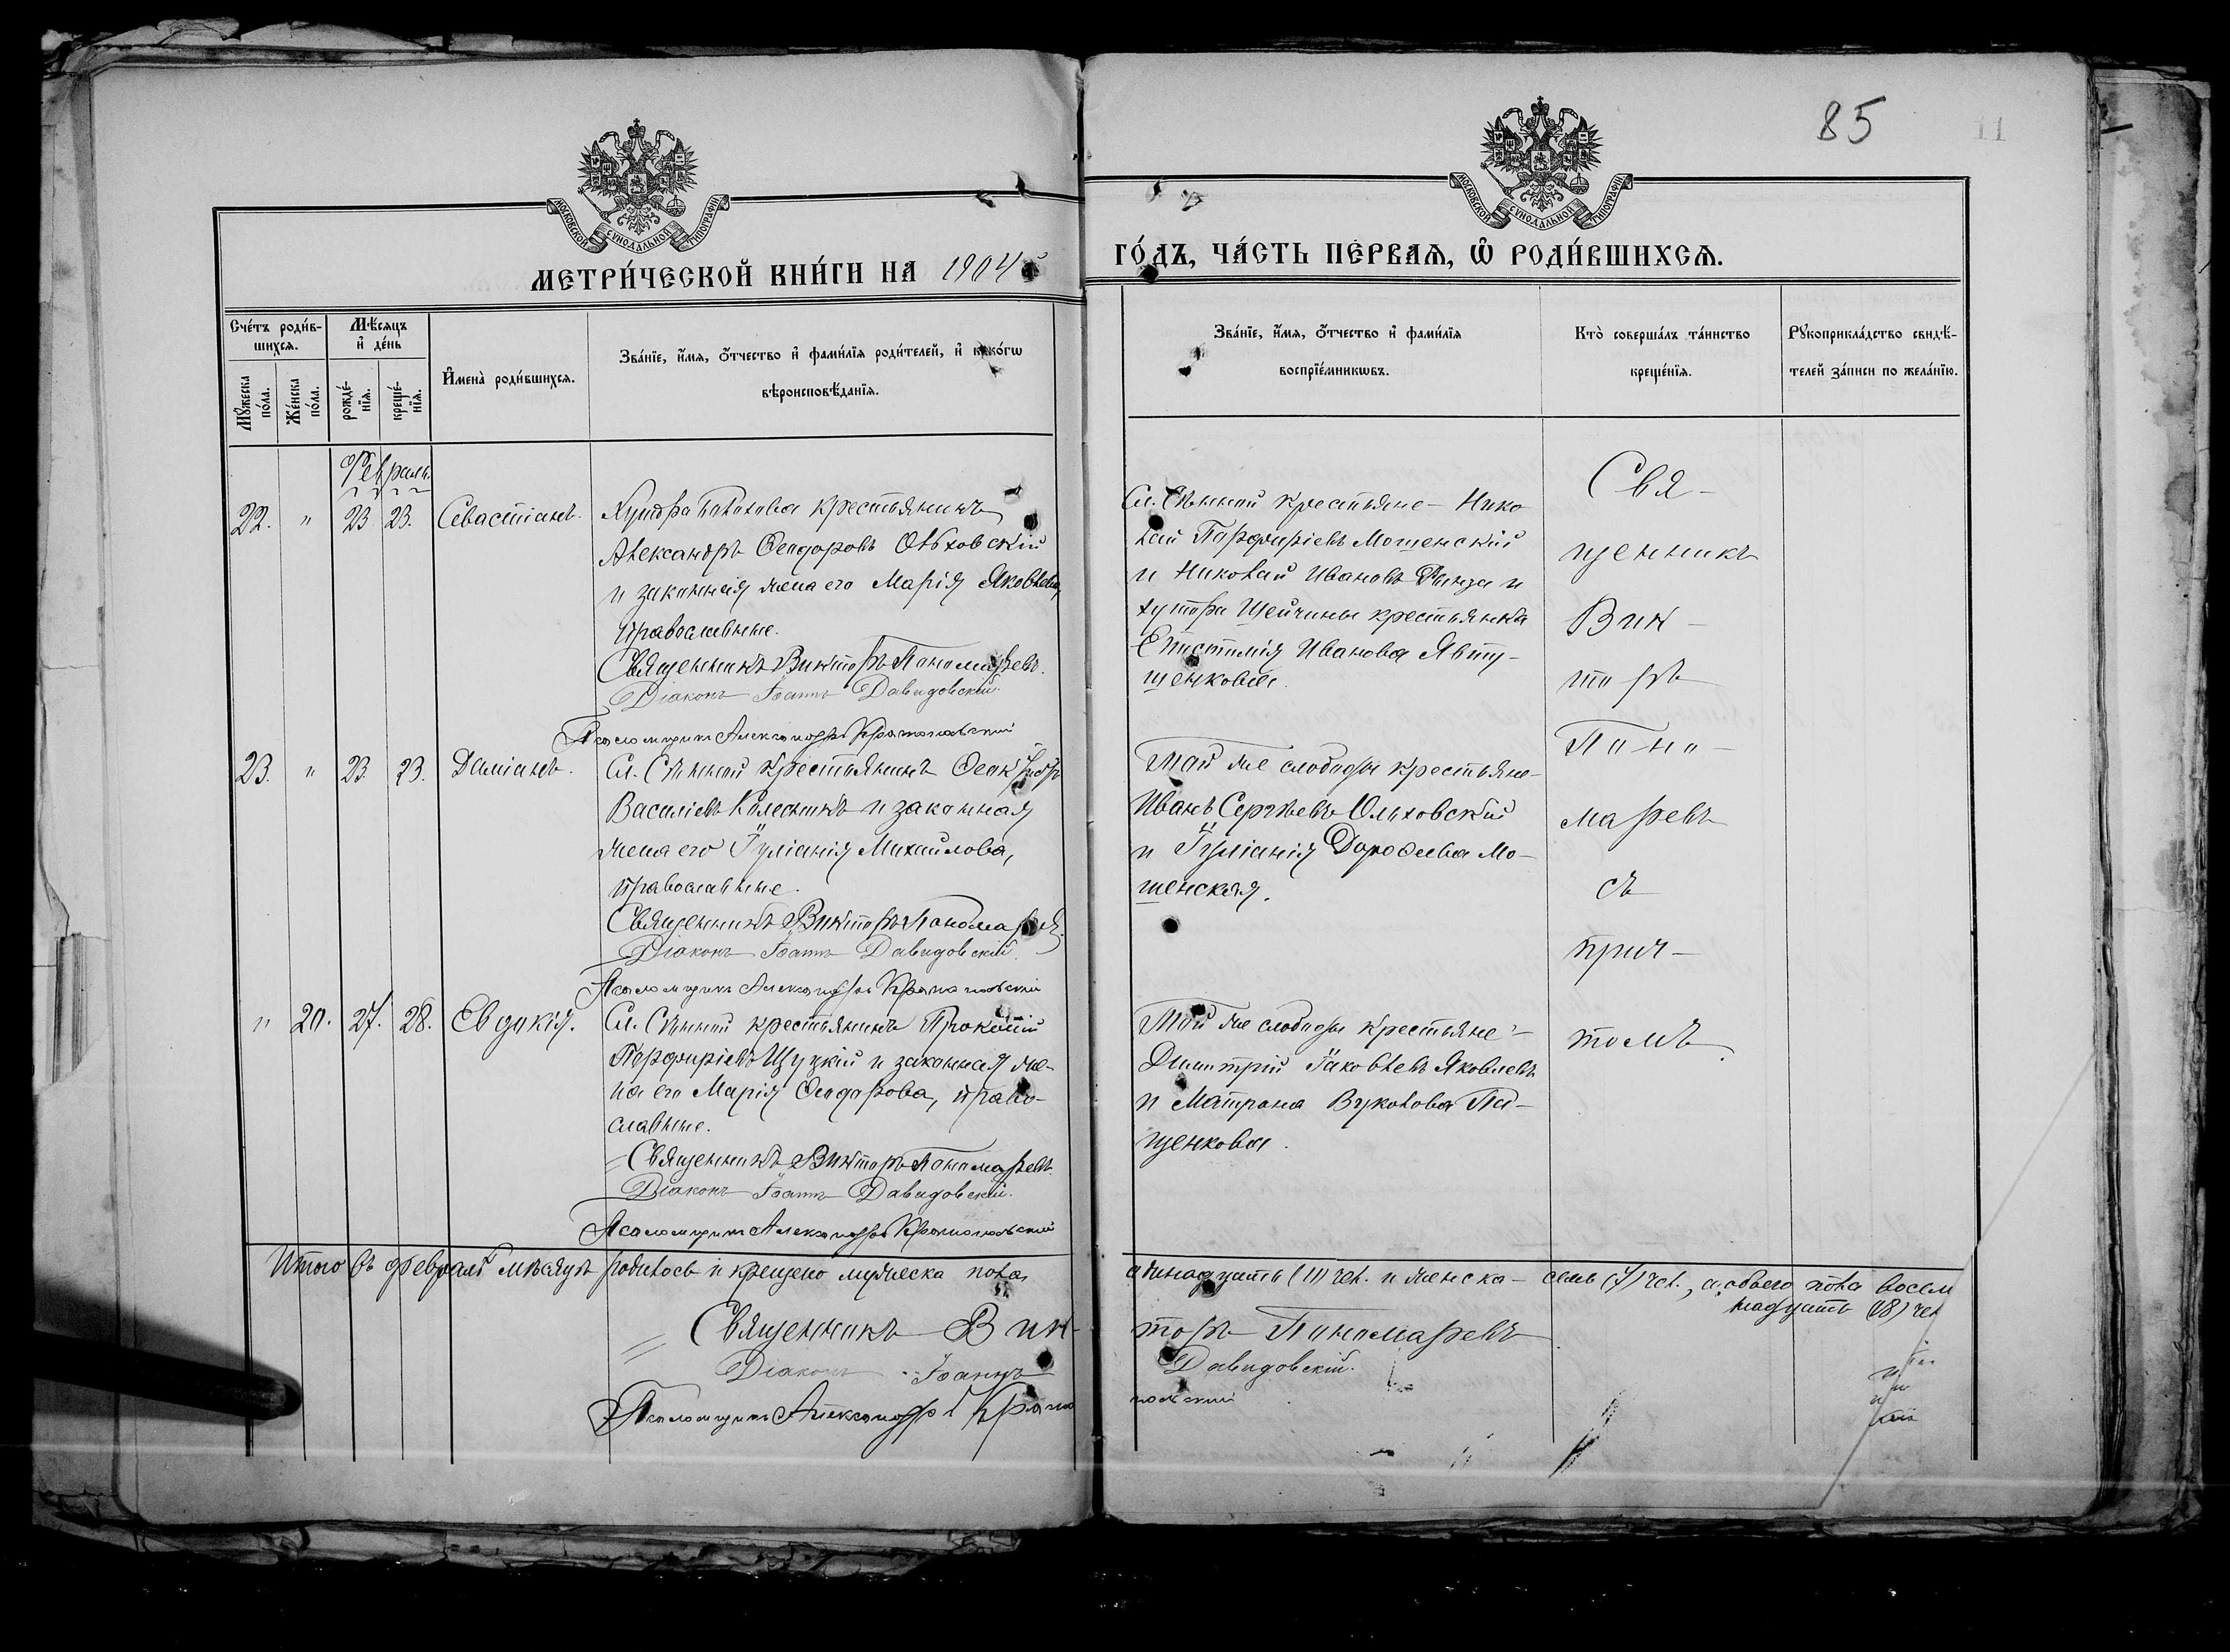 85
11
МОСКОВСКОЙ СѴНОДАЛЬНОЙ ТИПОГРАФІИ
МОСКОВСКОЙ СѴНОДАЛЬНОЙ ТИПОГРАФІИ
МЕТРИ́ЧЕСКОЙ КНИ́ГИ НА 1904й
ГО́ДЪ, ЧА́СТЬ ПЕ́РВАѦ, Ѽ РОДИ́ВШИХСѦ.
Сче́тъ роди́в-
шихсѧ.
Мꙋ́жеска
по́ла.
Же́нска
по́ла.
Мѣ́сѧцъ
и҆ де́нь
рожде́-
нїѧ.
креще́-
нїѧ.
И҆мена̀ роди́вшихсѧ.
Зва́нїе, и҆́мѧ, ѻ҆́тчество и҆ фами́лїѧ роди́телей, и҆ како́гѡ
вѣроисповѣ́данїѧ.
Зва́нїе, и҆́мѧ, ѻ҆́тчество и҆ фами́лїѧ
воспрїе́мникѡвъ.
Кто̀ соверша́лъ та́инство
креще́нїѧ.
Рꙋкоприкла́дство свидѣ́-
телей за́писи по жела́нїю.
Февраль
22. " 23 23. Севастіанъ.
Хутора крестьянинъ
Александръ Ѳеодоровъ Ольховскій
и законная жена его Марія Яковлева,
православные.
Священникъ Викторъ Пономаревъ.
Діаконъ Іоаннъ Давидовскій.
Псаломщикъ Александръ
Сл. Сѣнной крестьяне – Нико
лай Порфиріевъ Мошенскій
и Николай Ивановъ и
хутора крестьянка
Епистимія Иванова Явту-
шенкова.
Свя-
щенникъ
Вик-
торъ
Поно-
маревъ
съ
прич-
томъ.
23. " 23. 23. Даміанъ.
Сл. Сѣнной крестьянинъ
Василіевъ Колесникъ и законная
жена его Іуліанія Михайлова,
православные.
Священникъ Викторъ Пономаревъ.
Діаконъ Іоаннъ Давидовскій.
Псаломщикъ Александръ
Той же слободы крестьяне –
Иванъ Сергѣевъ Ольховскій
и Іуліанія Дороѳеева Мо-
шенская.
" 20. 27. 28. Евдокія.
Сл. Сѣнной крестьянинъ Прокопій
Порфиріевъ Щуцкій и законная же-
на его Марія Ѳеодорова, право-
славные.
Священникъ Викторъ Пономаревъ.
Діаконъ Іоаннъ Давидовскій.
Псаломщикъ Александръ
Той же слободы крестьяне –
Димитрій Іаковлевъ Яковлевъ
и Матрона Па-
щенкова.
Итого въ февралѣ мѣсяцѣ родилось и крещено мужеска пола
одинадцать (11) чел. и женска – семь (7) чел., а обоего пола восем
надцать (18) чел
Священникъ Вик-
торъ Пономаревъ
Діаконъ Іоаннъ
Давидовскій.
Псаломщикъ Александръ